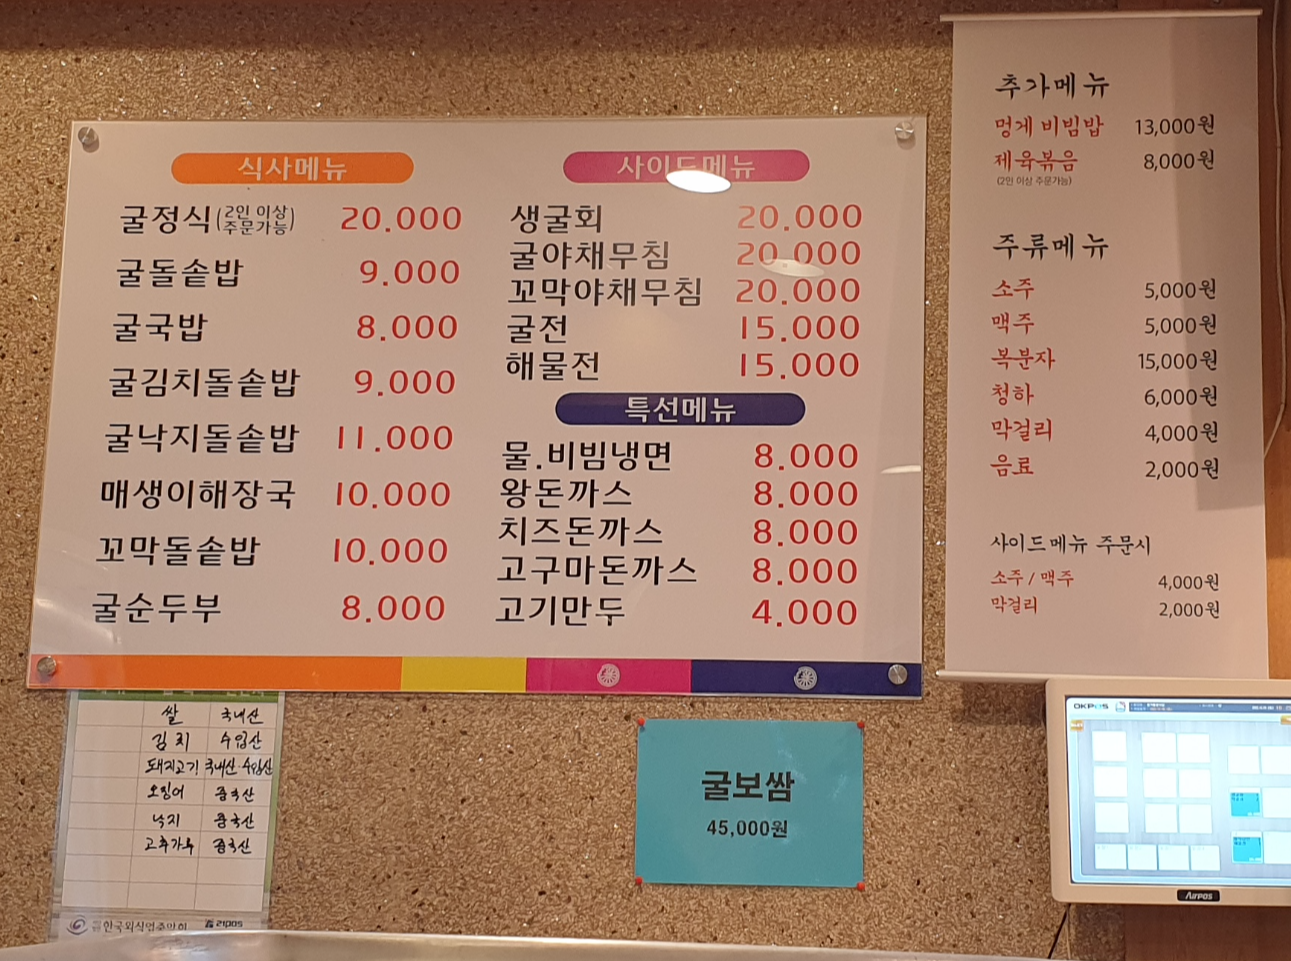 식사메뉴
굴정식(2인 이상 주문가능) 20.000
굴돌솥밥 9.000
굴국밥 8.000
굴김치돌솥밥 9.000
굴낙지돌솥밥 11.000
매생이해장국 10.000
꼬막돌솥밥 10.000
굴순두부 8.000
사이드메뉴
생굴회 20.000
굴야채무침 20.000
꼬막야채무침 20.000
굴전 15.000
해물전 15.000
특선메뉴
물.비빔냉면 8.000
왕돈까스 8.000
치즈돈까스 8.000
고구마돈까스 8.000
고기만두 4.000
추가메뉴
멍게 비빔밥 13,000원
제육볶음 8,000원
(2인 이상 주문가능)
주류메뉴
소주 5,000원
맥주 5,000원
복분자 15,000원
청하 6,000원
막걸리 4,000원
음료 2,000원
사이드메뉴 주문시
소주 / 맥주 4,000원
막걸리 2,000원
쌀 국내산
김치 수입산
돼지고기 국내산·수입산
오징어 중국산
낙지 중국산
고추가루 중국산
한국외식업중앙회 21pos
굴보쌈
45,000원
OKPOS
AirPOS